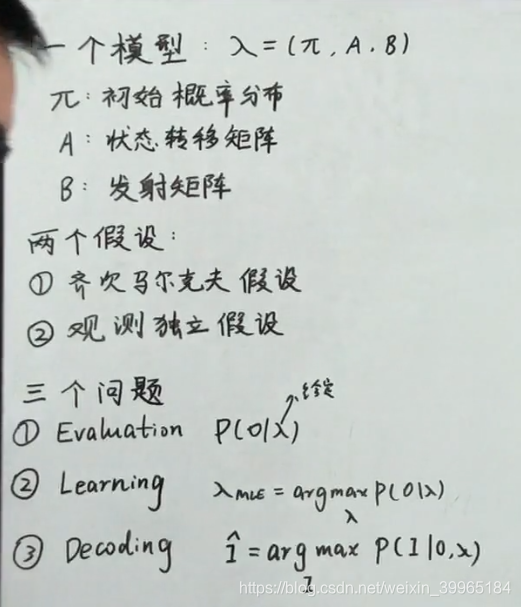 一个模型: λ=(π, A, B)
π: 初始概率分布
A: 状态转移矩阵
B: 发射矩阵
两个假设:
① 齐次马尔克夫假设
② 观测独立假设
三个问题
给定
① Evaluation P(O|λ)
② Learning λMLE = argmax P(O|λ)
λ
③ Decoding Î = arg max P(I|O,λ)
I
https://blog.csdn.net/weixin_39965184